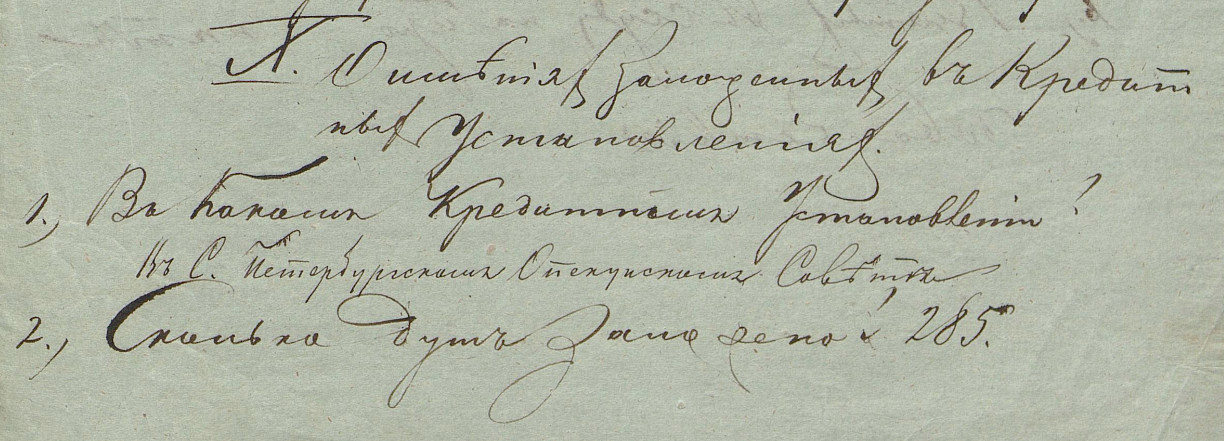 X. О имѣніяхъ заложенныхъ въ Кредит
ныхъ Установленіяхъ.
1., Въ какомъ Кредитномъ Установленіи?
Въ С. Петербургскомъ Опекунскомъ Совѣтѣ
2., Сколько душъ заложено? 285.